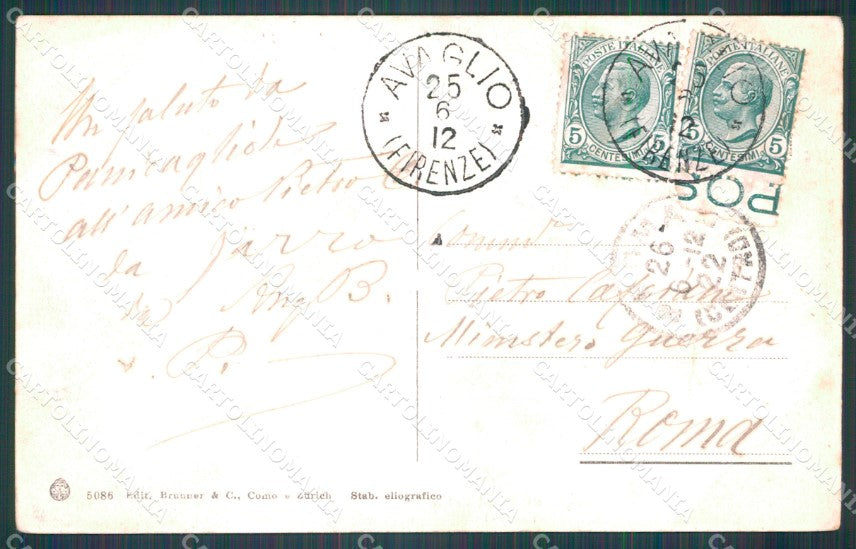 Un saluto da
Panicaglio
all'amico Pietro
da Jarro
Ang B.
P.
AVAGLIO
25
6
12
(FIRENZE)
POSTE ITALIANE
5 5
CENTESIMI
POSTE ITALIANE
5 5
CENTESIMI
POS
26-
6-12
12
Comm
Pietro
Ministero Guerra
Roma
5086 Edit. Brunner & C., Como e Zürich Stab. eliografico
CARTOLINOMANIA